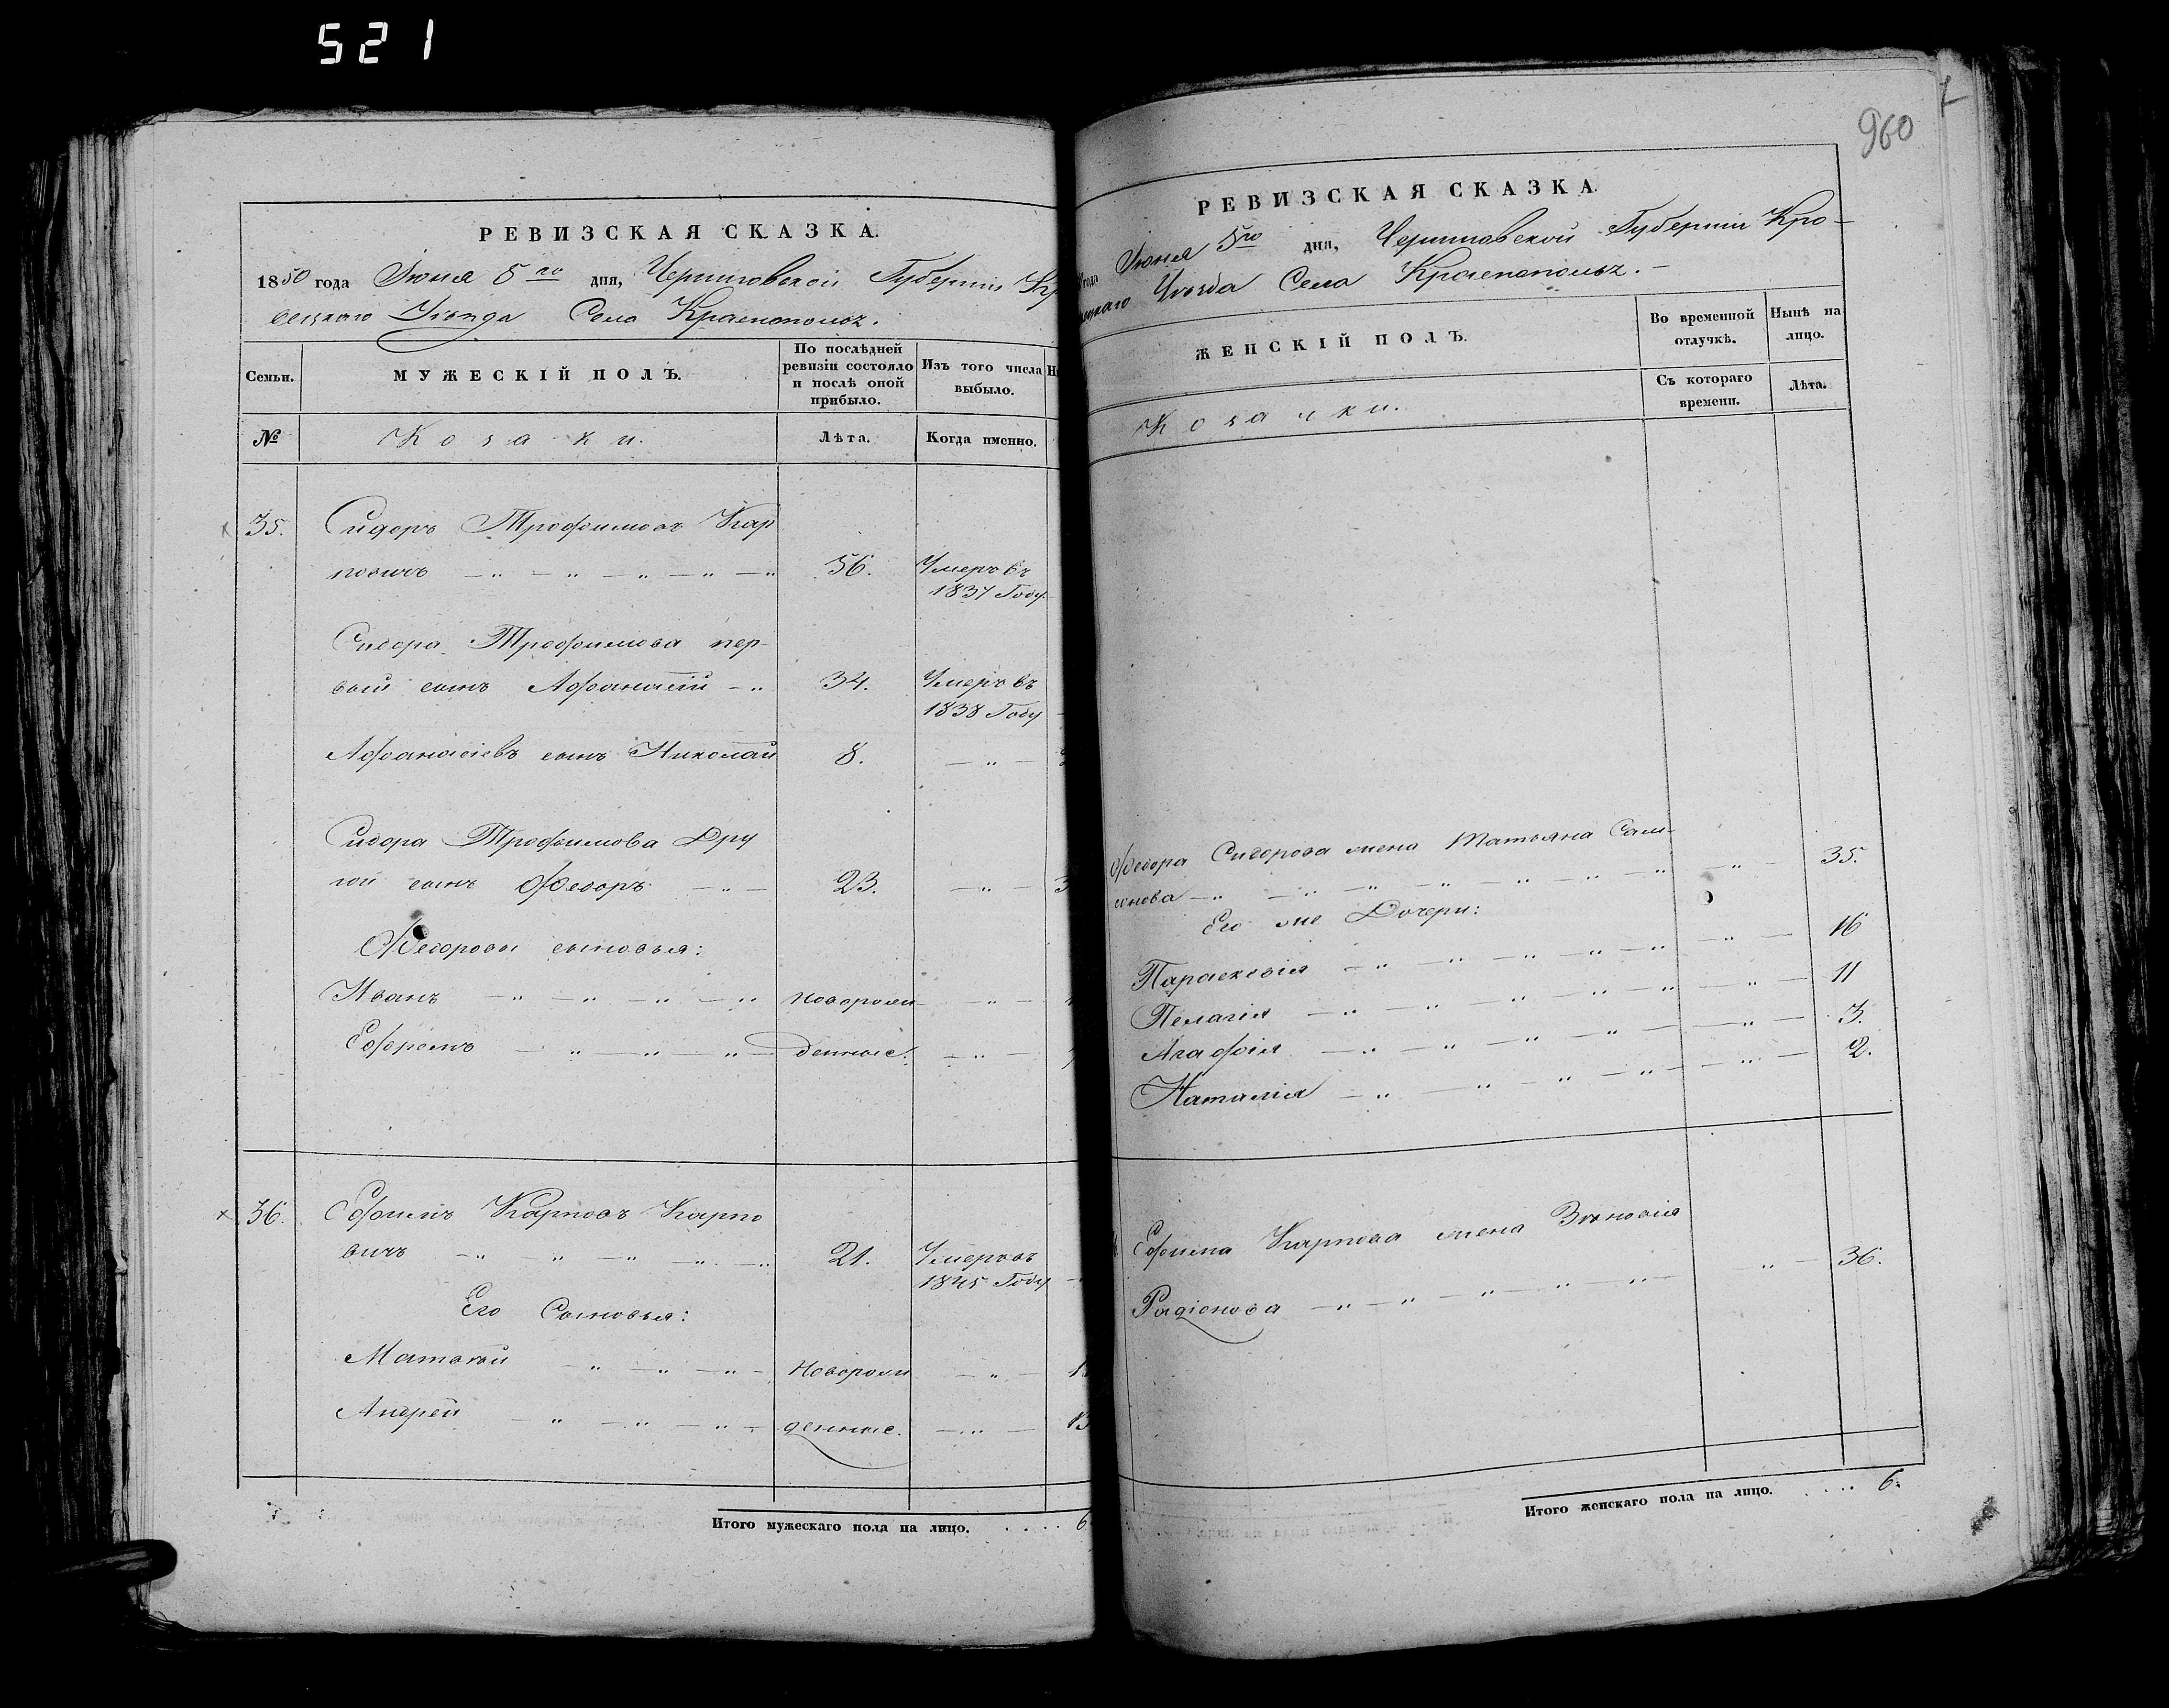 521
РЕВИЗСКАЯ СКАЗКА.
1850 года Июня 5го дня, Черниговской Губерніи Кр
вецкаго Уѣзда Села Краснополъ.
Семьи.
МУЖЕСКІЙ ПОЛЪ.
По послѣдней ревизіи состояло и послѣ оной прибыло.
Изъ того числа выбыло.
№
Козаки.
Лѣта.
Когда именно.
35. Сидоръ Трофимовъ Кар
повичъ 56. Умеръ въ
1837 Году.
Сидора Трофимова пер-
вый сынъ Афанасій 34. Умеръ въ
1838 Году
Афанасіевъ сынъ Николай 8.
Сидора Трофимова Дру
гой сынъ Федоръ 23. 3
Федоровы сыновья:
Иванъ новорож
Ефремъ денные.
36. Ефимъ Карповъ Карпо
вичъ 21. Умеръ въ
1845 Году
Его Сыновья:
Матвѣй Новорож 1
Андрей денные. 13
Итого мужескаго пола на лицо. . . . . 6
960
РЕВИЗСКАЯ СКАЗКА.
года Июня 5го дня, Черниговской Губерніи Кро-
вецкаго Уѣзда Села Краснополъ.-
ЖЕНСКІЙ ПОЛЪ.
Во временной отлучкѣ.
Нынѣ на лицо.
Козачки.
Съ котораго времени.
Лѣта.
Федора Сидорова жена Татьяна Сам-
онова 35.
Его же Дочери:
Параскевія 16
Пелагія 11
Агафія 3.
Наталія 2.
Ефима Карпова жена Зѣновія
Радіонова 36.
Итого женскаго пола на лицо. . . . . 6.